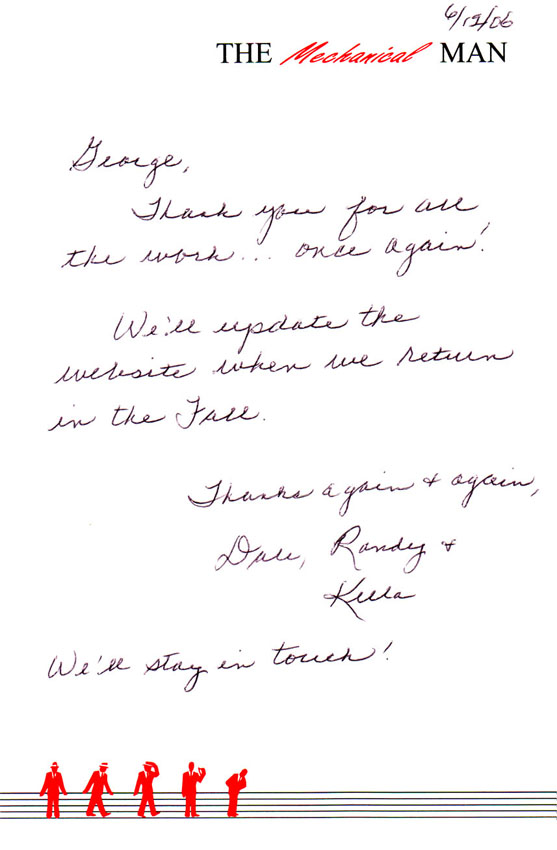 6/12/06
THE Mechanical MAN
George,
Thank you for all
the work... once again!
We'll update the
website when we return
in the Fall.
Thanks again & again,
Dale, Randy &
Kella
We'll stay in touch!